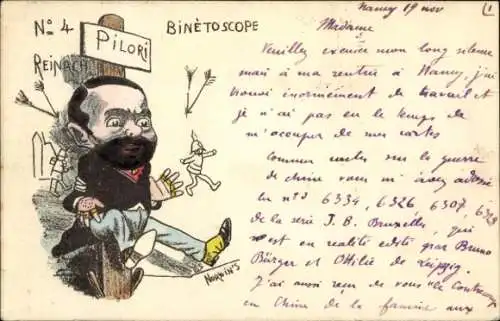 No 4
PILORI
BINÈTOSCOPE
REINACH
NORWIN'S
Nancy 19 nov
(1
Madame
Veuillez excuser mon long silence
mais à ma rentrée à Nancy, j'ai
trouvé énormément de travail et
je n'ai pas eu le temps de
m'occuper de mes cartes
Comme cartes sur la guerre
de chine vous m'avez adressé
les nos 6334, 6326 6307 6328
de la série J. B. Bruxelles, qui
est en realité edité par Bruno
Bürger et Ottilie de Leipzig.
J'ai aussi reçu de vous "le
en Chine de la fameuse aux